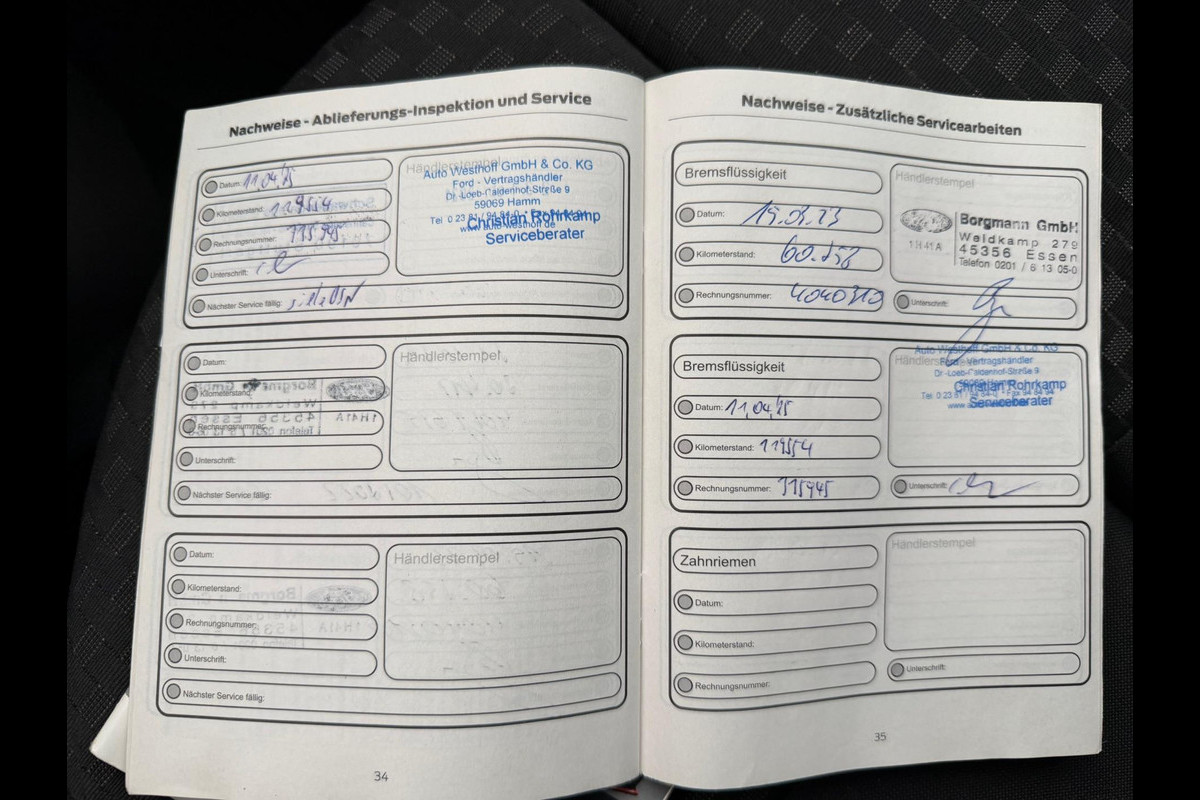 Nachweise - Ablieferungs-Inspektion und Service
Datum: 11.04.25
Kilometerstand: 119554
Rechnungsnummer: 115945
Unterschrift:
Nächster Service fällig: siehe DSN
Händlerstempel
Auto Westhoff GmbH & Co. KG
Ford - Vertragshändler
Dr.-Loeb-Caldenhof-Straße 9
59069 Hamm
Tel 0 23 81 / 94 94-0
www.auto-westhoff.de
Christian Rohrkamp
Serviceberater
Datum:
Kilometerstand:
Rechnungsnummer:
Unterschrift:
Nächster Service fällig:
Händlerstempel
Datum:
Kilometerstand:
Rechnungsnummer:
Unterschrift:
Nächster Service fällig:
Händlerstempel
34
Nachweise - Zusätzliche Servicearbeiten
Bremsflüssigkeit
Datum:
Kilometerstand:
Rechnungsnummer: 4040310
Händlerstempel
1H41A
Borgmann GmbH
Weidkamp 279
45356 Essen
Telefon 0201 / 6 13 05-0
Unterschrift:
Bremsflüssigkeit
Datum: 11,04,25
Kilometerstand: 119554
Rechnungsnummer: 115945
Händlerstempel
Auto Westhoff GmbH & Co. KG
Ford - Vertragshändler
Dr.-Loeb-Caldenhof-Straße 9
59069 Hamm
Christian Rohrkamp
Serviceberater
Unterschrift:
Zahnriemen
Datum:
Kilometerstand:
Rechnungsnummer:
Händlerstempel
Unterschrift:
35